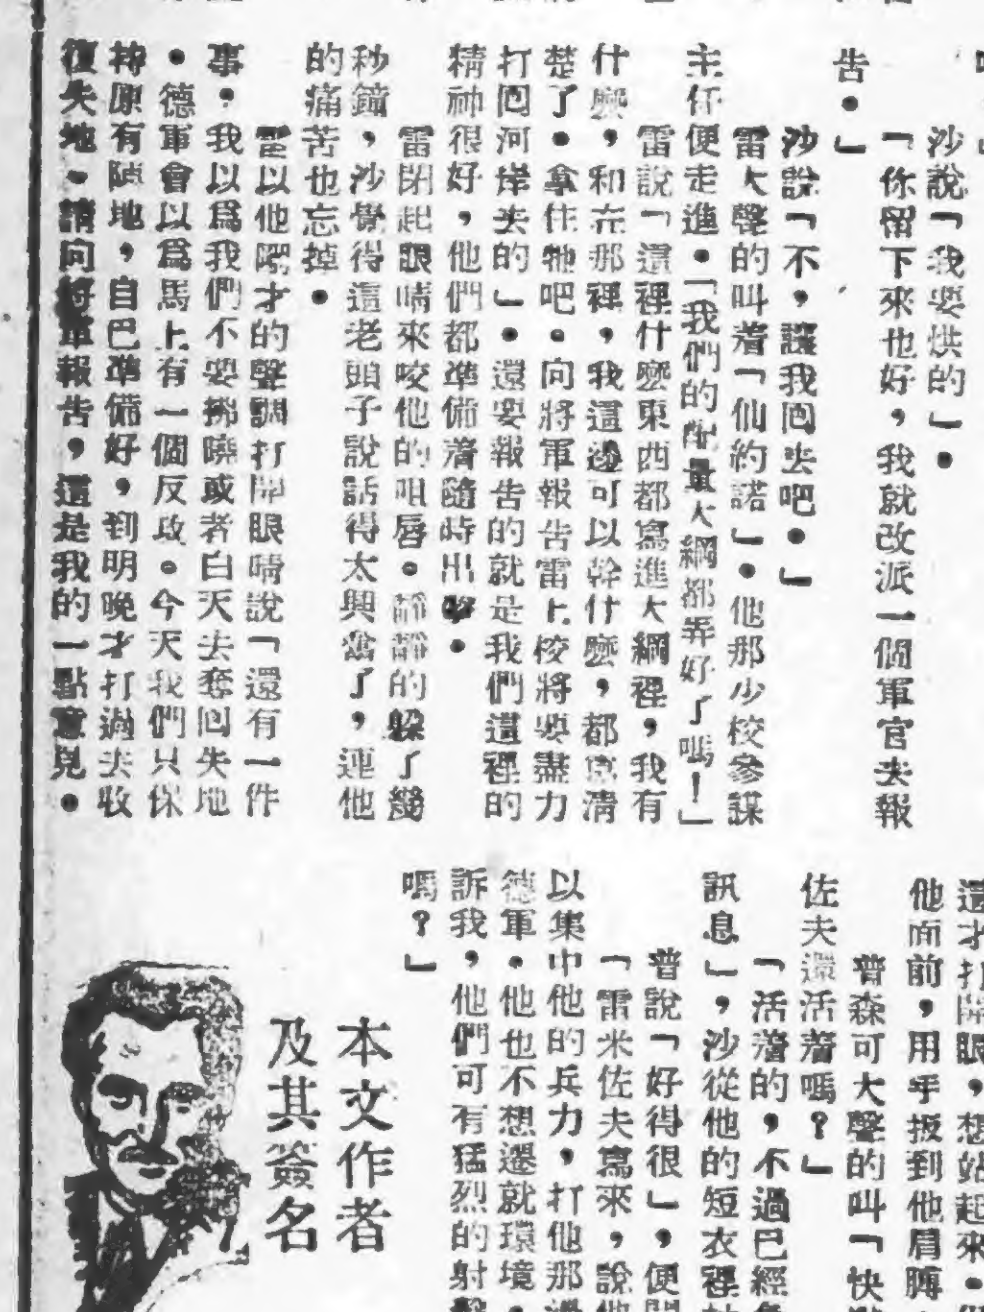 沙說「我要烘的」。
「你留下來也好，我就改派一個軍官去報
告。」
沙說「不，讓我回去吧。」
雷大聲的叫着「仙約諾」。他那少校參謀
主任便走進。「我們的配量大綱都弄好了嗎！」
雷說「這裡什麼東西都寫進大綱裡，我有
什麼，和在那裡，我這邊可以幹什麼，都寫清
楚了。拿住牠吧。向將軍報告雷上校將要盡力
打回河岸去的」。還要報告的就是我們這裡的
精神很好，他們都準備着隨時出擊。
雷閉起眼睛來咬他的咀唇。靜靜的躲了幾
秒鐘，沙覺得這老頭子說話得太興奮了，連他
的痛苦也忘掉。
雷以他嘿才的聲調打開眼睛說「還有一件
事。我以爲我們不要拂曉或者白天去奪回失地
。德軍會以爲馬上有一個反攻。今天我們只保
持原有陣地，自己準備好，到明晚才打過去收
復失地。請向將軍報告，這是我的一點意見。
這才打開眼，想站起來。
他面前，用手扳到他肩膊
普森可大聲的叫「快
佐夫還活着嗎？」
「活着的，不過已經
訊息」，沙從他的短衣裡
普說「好得很」，便
「雷米佐夫寫來，說他
以集中他的兵力，打他那邊
德軍。他也不想遷就環境。
訴我，他們可有猛烈的射擊
嗎？」
本文作者
及其簽名